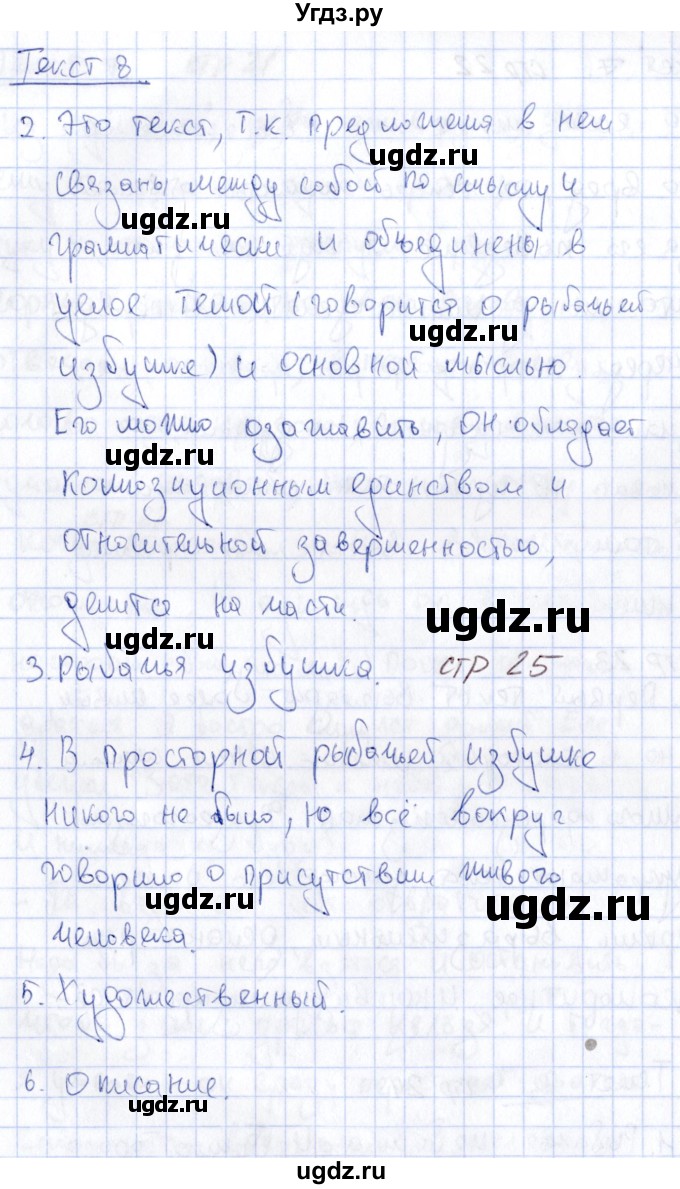 Угдз.ру
Текст 8
2. Это текст, т.к. предложения в нем
ugdz.ru
связаны между собой по смыслу и
ugdz.ru
грамматически и объединены в
целое темой (говорится о рыбачьей
ugdz.ru
избушке) и основной мыслью.
Его можно озаглавить, он обладает
ugdz.ru
композиционным единством и
относительной завершенностью,
делится на части.
ugdz.ru
ugdz.ru
3. Рыбачья избушка. стр 25
4. В просторной рыбачьей избушке
ugdz.ru
никого не было, но всё вокруг
говорило о присутствии живого
ugdz.ru
ugdz.ru
человека.
5. Художественный.
6. Описание.
ugdz.ru
ugdz.ru